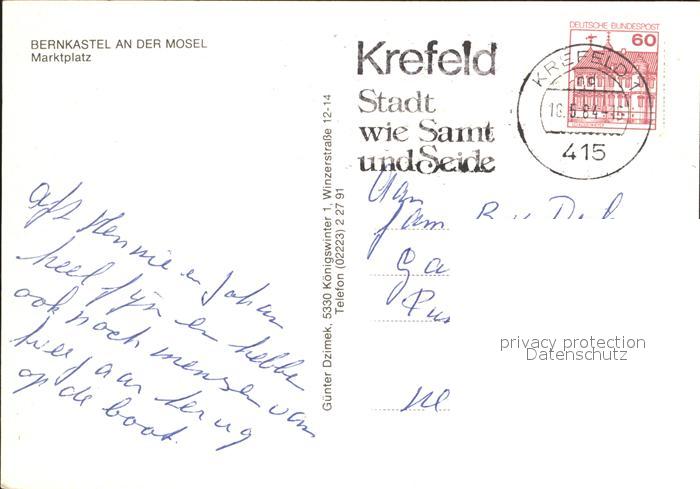 BERNKASTEL AN DER MOSEL
Marktplatz
Krefeld
Stadt
wie Samt
und Seide
DEUTSCHE BUNDESPOST
60
KREFELD 1
415
Günter Dzimek, 5330 Königswinter 1, Winzerstraße 12-14
Telefon (02223) 2 27 91
Hennie en Johan
heel fijn en hebben
ook noch mensen van
twee jaar terug
op de boot.
Aan
fam
privacy protection
Datenschutz